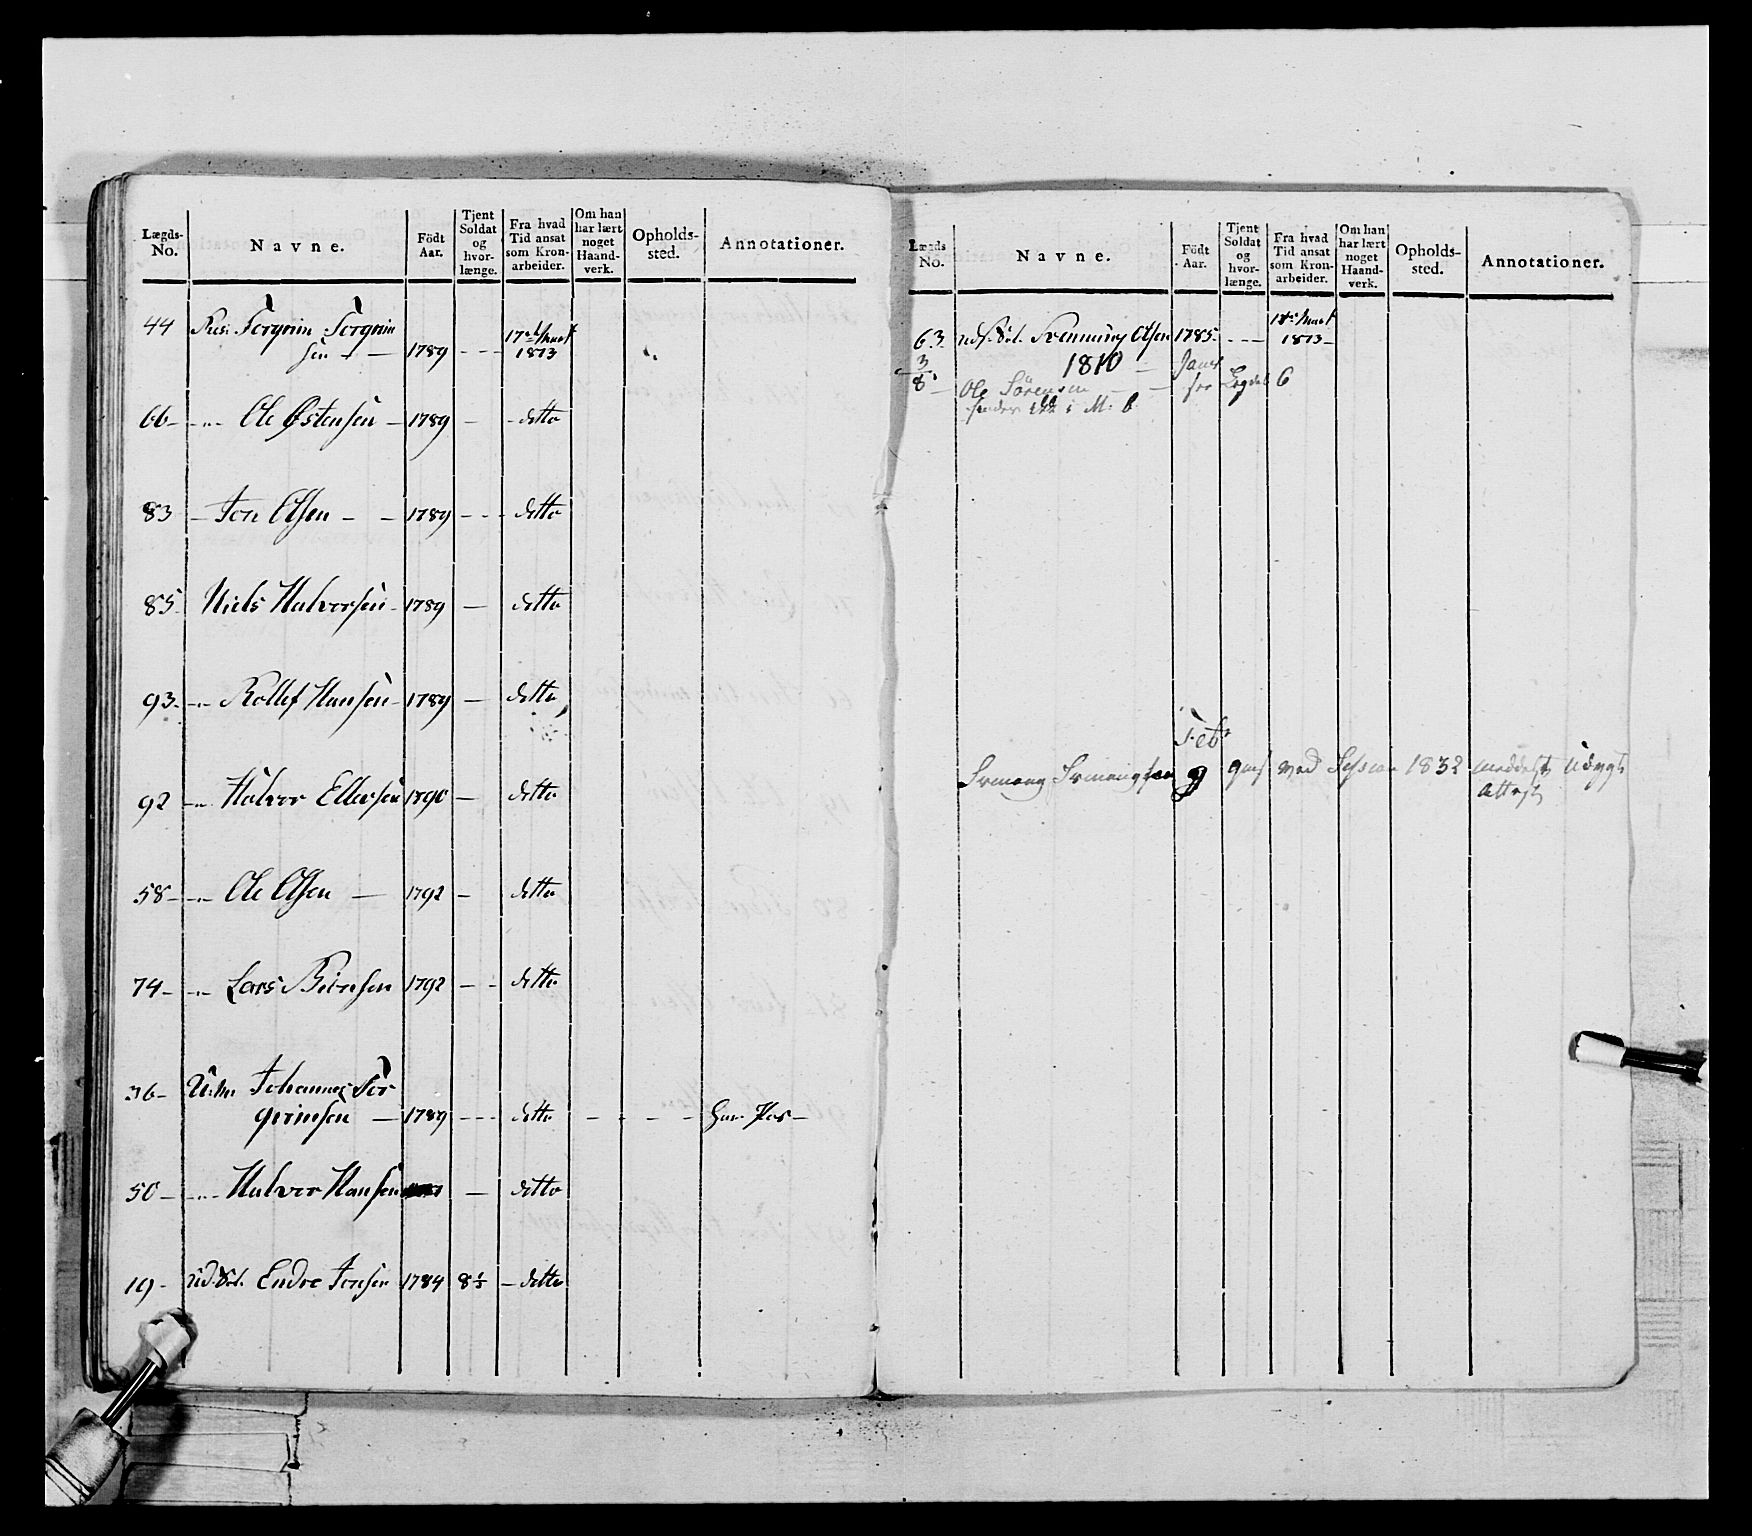 Lægds-No. Navne. Födt Aar. Tjent Soldat og hvor-længe. Fra hvad Tid ansat som Kron-arbeider. Om han har lært noget Haand-verk. Opholds-sted. Annotationer.
44 Torgrim Torgrim
sen — 1789 --- 17de Mart 1813
66 - -"- Ole Østensen - 1789 - - detto
83 - Jon Olsen - - 1789 --- detto
85 Niels Halvorsen - 1789 - detto
93 - -"- Rollef Hansen - 1789 - detto
92 -"- Halvor Ellefsen 1790 - detto
58 - -"- Ole Olsen — 1792 - detto
74 - -"- Lars 1792 - - detto
36 - Johannes Tor
grimsen — 1789 --- detto - - - - har Pas -
50 - -"- Halvor Hansen - detto
19 - Ud. Sol. Endre Jonsen 1784 8½ - detto
Lægds No. Navne. Födt Aar. Tjent Soldat og hvor-længe. Fra hvad Tid ansat som Kron-arbeider. Om han har lært noget Haand-verk. Opholds-sted. Annotationer.
63 - Ud. Sol. Olsen 1785 - --- Mart 1813 -
1810 -
3/8 - Ole Sørensen - - see Lægd 6
i M: 6
Feb
9 ved Session 1832 meddelt
Attest